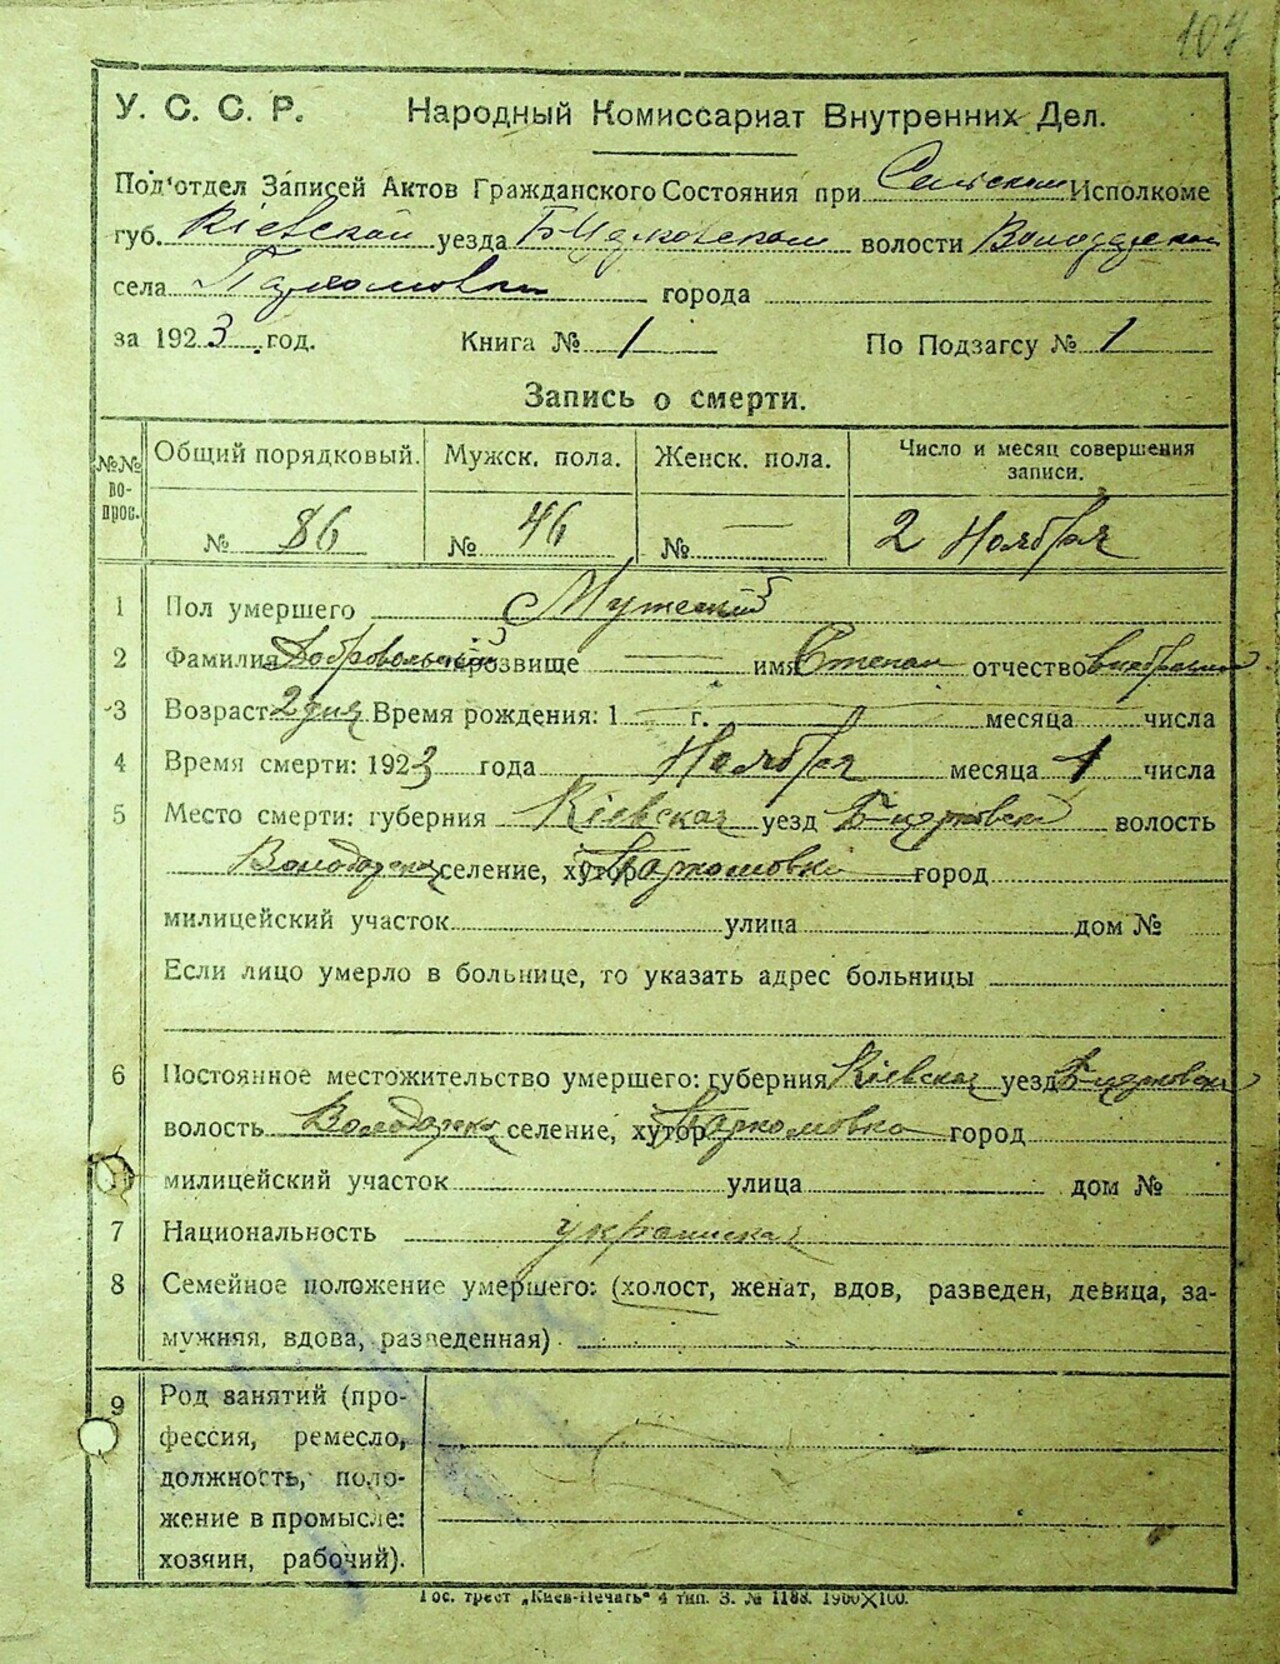 107
У. С. С. Р. Народный Комиссариат Внутренних Дел.
Под'отдел Записей Актов Гражданского Состояния при Сельском Исполкоме
губ. Кіевской уезда Б Церковском волости Володарской
села Пархомовки города
за 1923 год. Книга № 1 По Подзагсу № 1
Запись о смерти.
№№ во- прос. Общий порядковый. Мужск. пола. Женск. пола. Число и месяц совершения записи.
№ 86 № 46 № — 2 Ноября
1 Пол умершего Мужеский
2 Фамилия Добровольскій прозвище — имя Степан отчество
3 Возраст 2 дня Время рождения: 1 г. месяца числа
4 Время смерти: 1923 года Ноября месяца 1 числа
5 Место смерти: губерния Кіевская уезд Б-церковскі волость
Володарская селение, хутор Пархомовка город
милицейский участок улица дом №
Если лицо умерло в больнице, то указать адрес больницы
6 Постоянное местожительство умершего: губерния Кіевская уезд Б-церковскі
волость Володарска селение, хутор Пархомовка город
милицейский участок улица дом №
7 Национальность украинская
8 Семейное положение умершего: (холост, женат, вдов, разведен, девица, за-
мужняя, вдова, разведенная)
9 Род занятий (про-
фессия, ремесло,
должность, поло-
жение в промысле:
хозяин, рабочий).
Гос. трест „Киев-Печать“ 4 тип. З. № 1188. 1900×100.